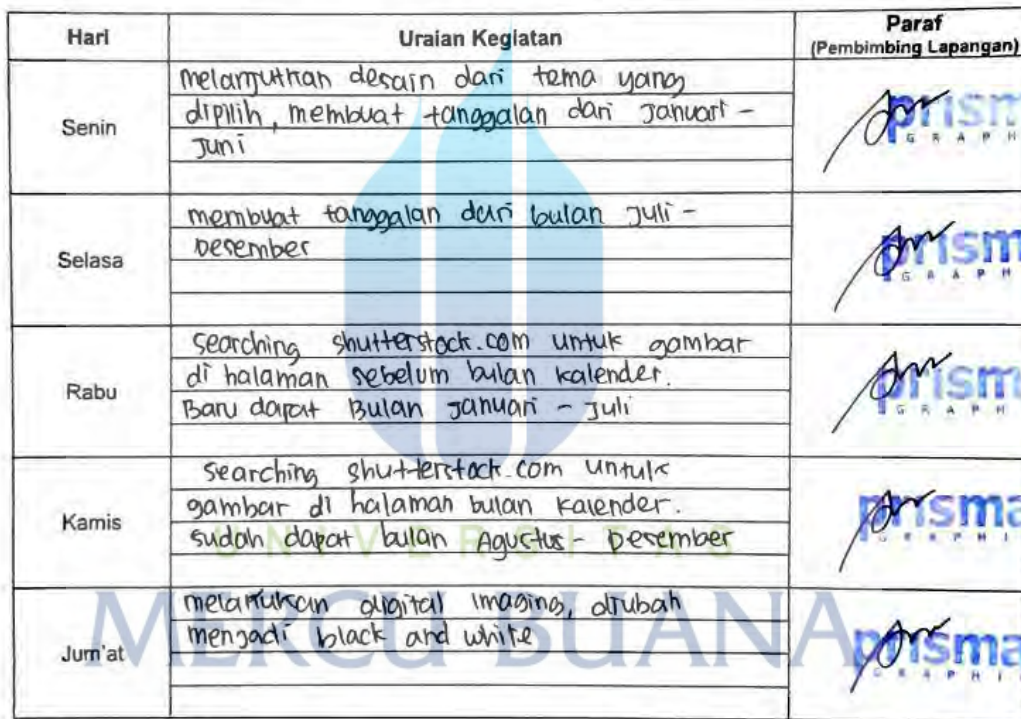 Hari Uraian Kegiatan Paraf
(Pembimbing Lapangan)
Senin
melanjutkan desain dari tema yang
dipilih, membuat tanggalan dari Januari -
Juni
prism
GRAPH
Selasa
membuat tanggalan dari bulan Juli -
Desember
prism
GRAPH
Rabu
searching shutterstock.com untuk gambar
di halaman sebelum bulan kalender.
Baru dapat Bulan Januari - Juli
prism
GRAPH
Kamis
searching shutterstock.com untuk
gambar di halaman bulan kalender.
sudah dapat bulan Agustus - Desember
prisma
GRAPHI
Jum'at
melakukan digital imaging, diubah
menjadi black and white
prisma
GRAPHI
UNIVERSITAS
MERCU BUANA